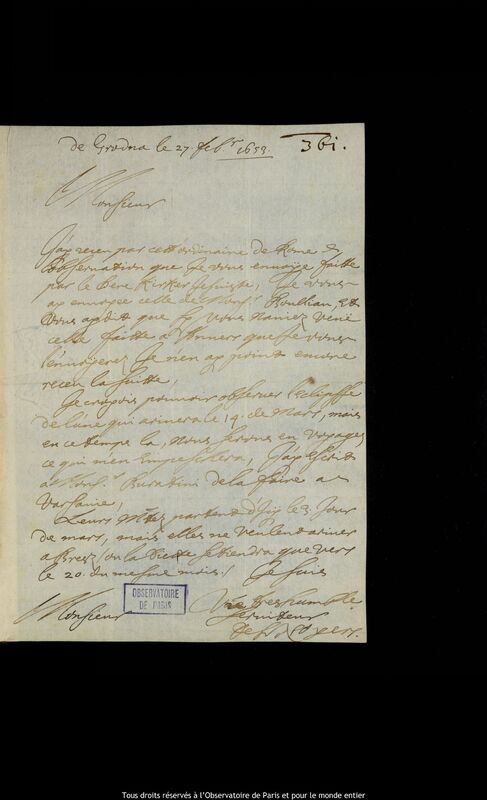 de Grodna le 27. feb.r 1653.
361.
Monsieur
J'ay receu par cett ordinaire de Rome
l'observation que Je vous envoÿe faitte
par le Pere Kirker Jesuiste, Je vous
ay envoyee celle de Mons.r Boulliau, Et
vous ay dit que sy vous n'aviez veue
celle faitte a Anvers que Je vous
l'envoÿerez Je n'en ay point encore
receu la suitte,
Je croyois pouvoir observer l'eclipsse
de lune qui arivera le 14. de Mars, mais
en ce temps la, Nous serons en voyage
ce qui m'en Empeschera, J'ay Escrit
a Mons.r Buratini de la faire a
Varsavie,
Leurs M.tez partent d'Icy le 3. Jour
de mars, mais elles ne veulent ariver
a Bresz ou la Diette se tiendra que vers
le 20. du mesme mois. Je suis
Monsieur
Vre tres humble
serviteur
des Noyers.
OBSERVATOIRE
DE PARIS
Tous droits réservés à l'Observatoire de Paris et pour le monde entier